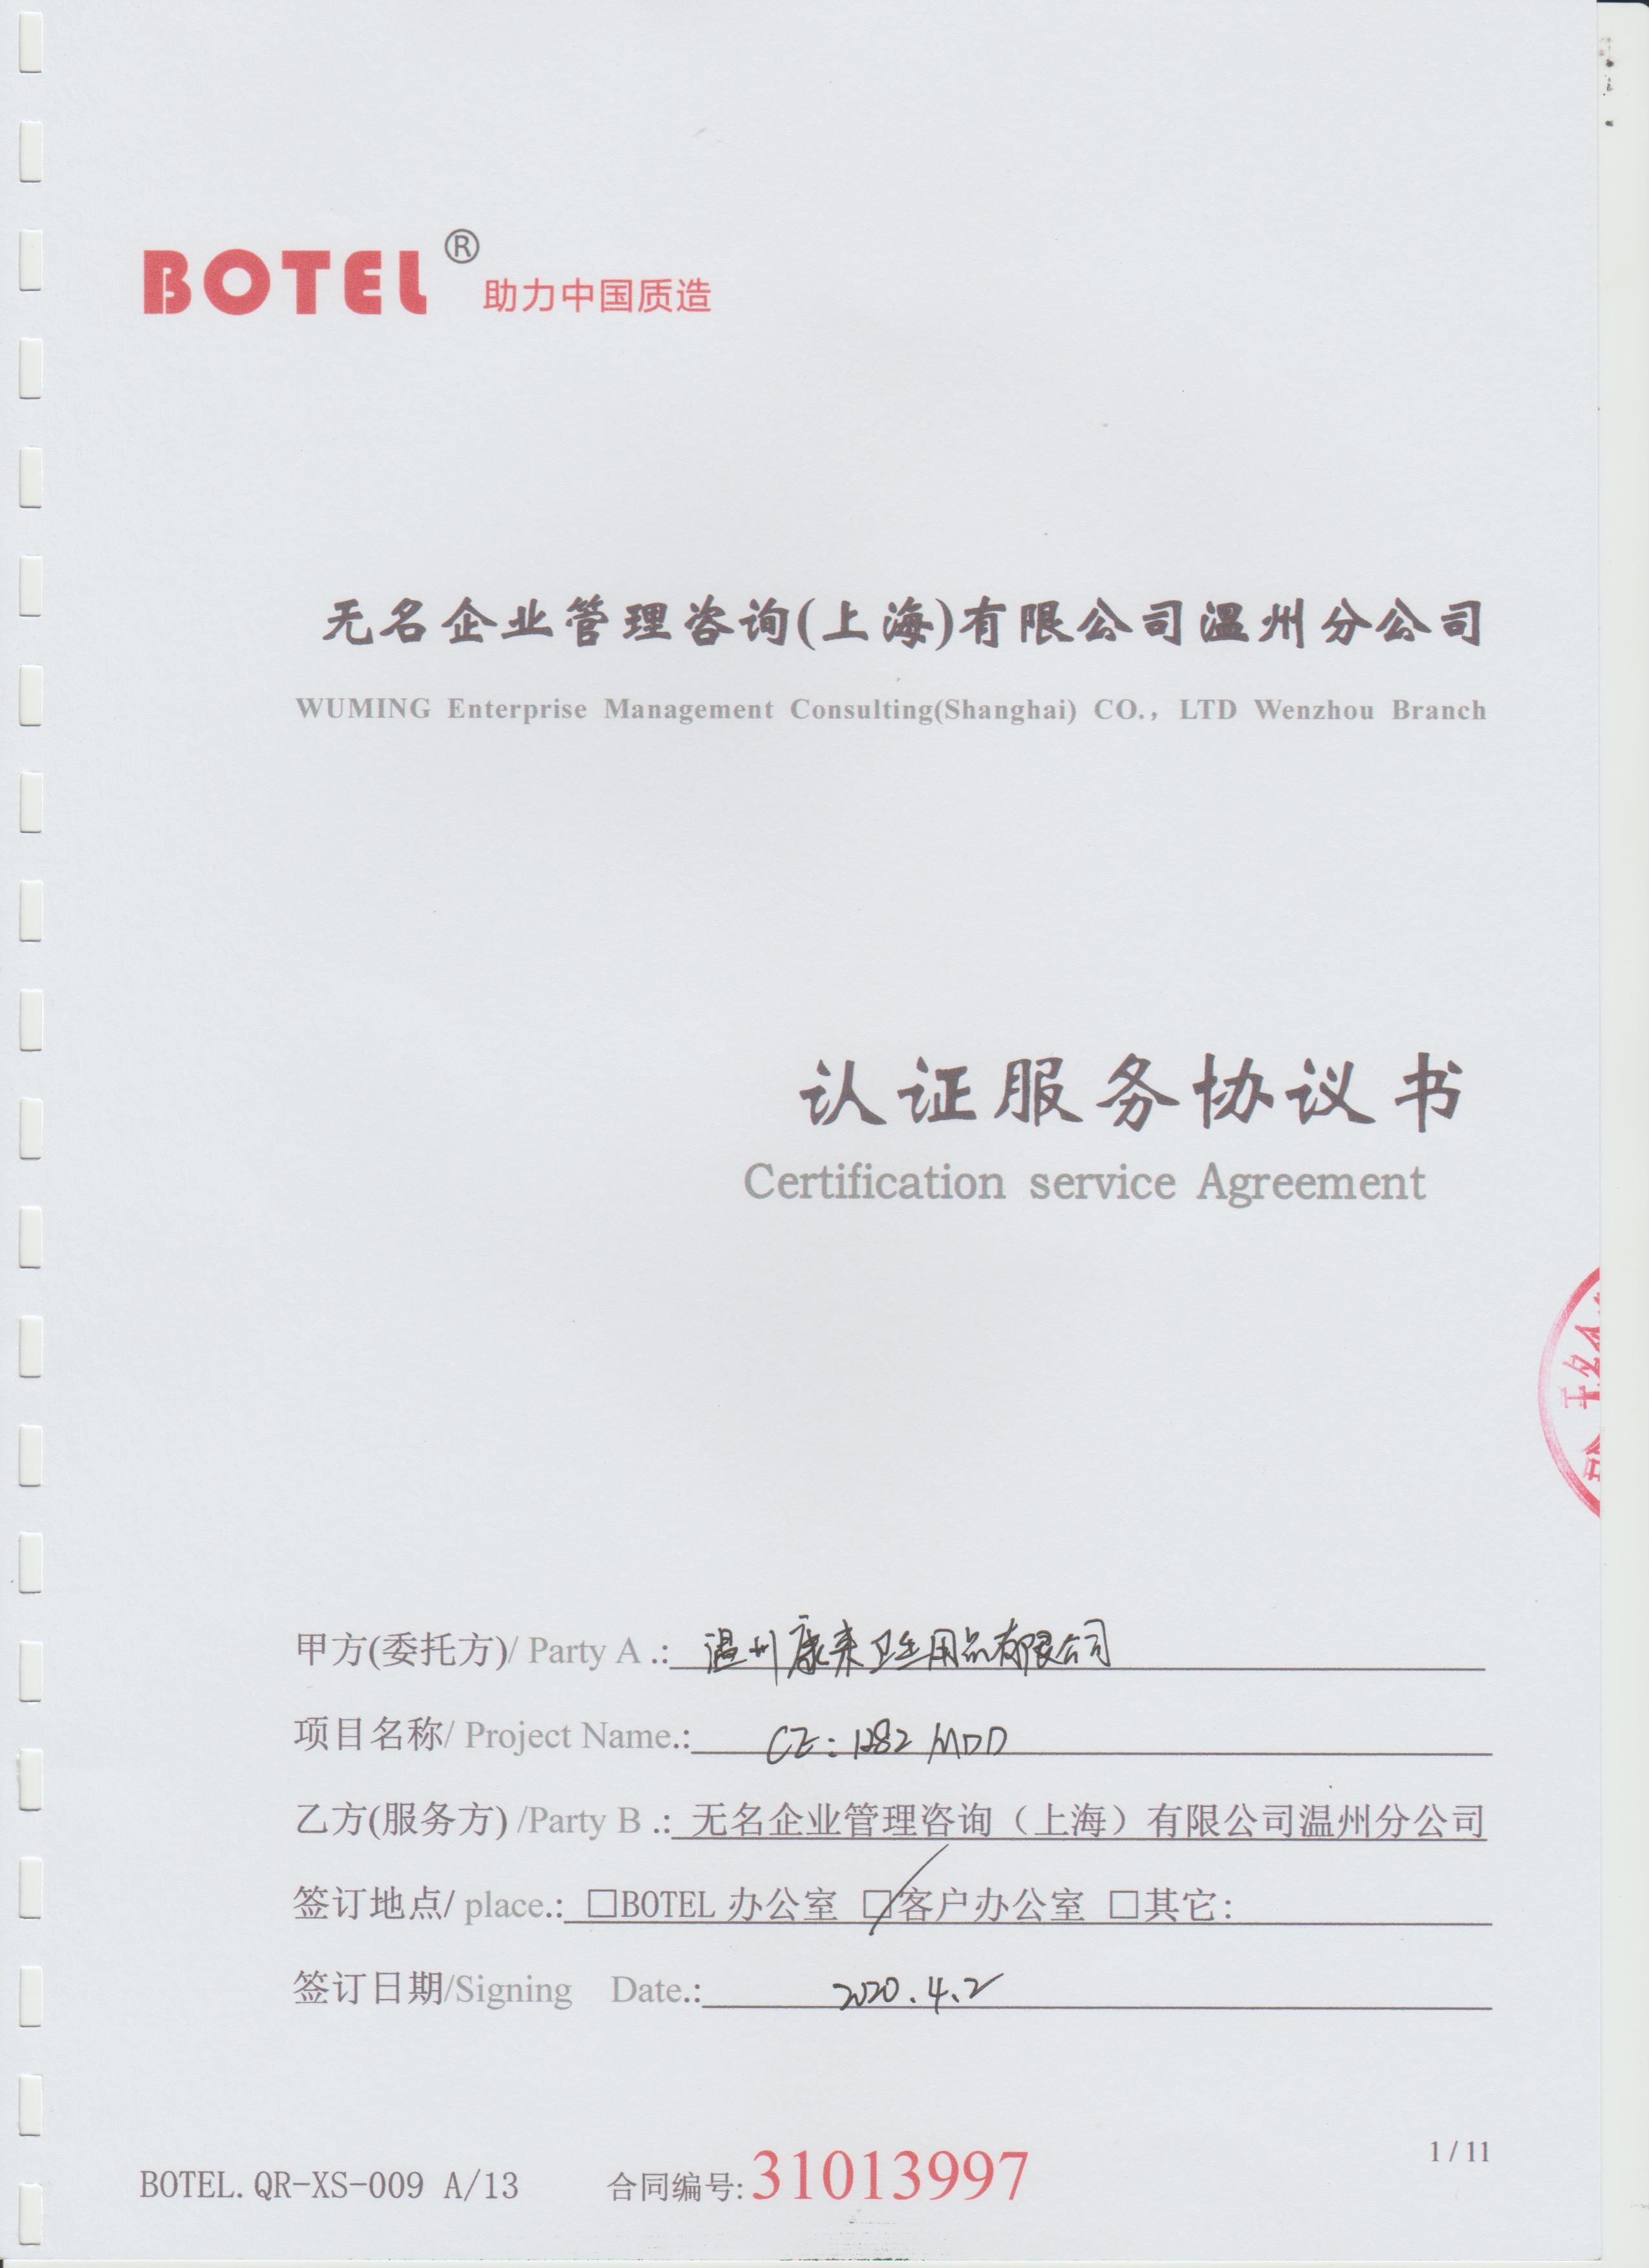 BOTEL® 助力中国质造
无名企业管理咨询(上海)有限公司温州分公司
WUMING Enterprise Management Consulting(Shanghai) CO., LTD Wenzhou Branch
认证服务协议书
Certification service Agreement
甲方(委托方)/ Party A .: 温州康来卫生用品有限公司
项目名称/ Project Name.: CE: 1282 MDD
乙方(服务方) /Party B .: 无名企业管理咨询（上海）有限公司温州分公司
签订地点/ place.: □BOTEL 办公室 □客户办公室 □其它:
签订日期/Signing Date.: 2020.4.2
1 / 11
BOTEL.QR-XS-009 A/13 合同编号: 31013997